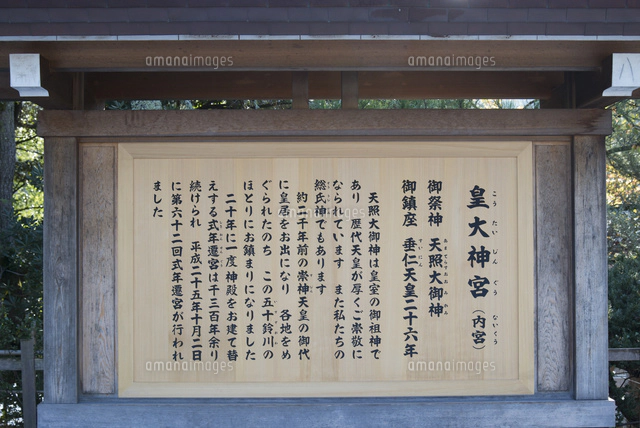 皇大神宮（内宮）
こうたいじんぐう ないくう
御祭神 天照大御神
御鎮座 垂仁天皇二十六年
天照大御神は皇室の御祖神で
あり 歴代天皇が厚くご崇敬に
なられています また私たちの
総氏神でもあります
約二千年前の崇神天皇の御代
に皇居をお出になり 各地をめ
ぐられたのち この五十鈴川の
ほとりにお鎮まりになりました
二十年に一度神殿をお建て替
えする式年遷宮は千三百年余り
続けられ 平成二十五年十月二日
に第六十二回式年遷宮が行われ
ました
amanaimages
amanaimages
amanaimages
amanaimages
amanaimages